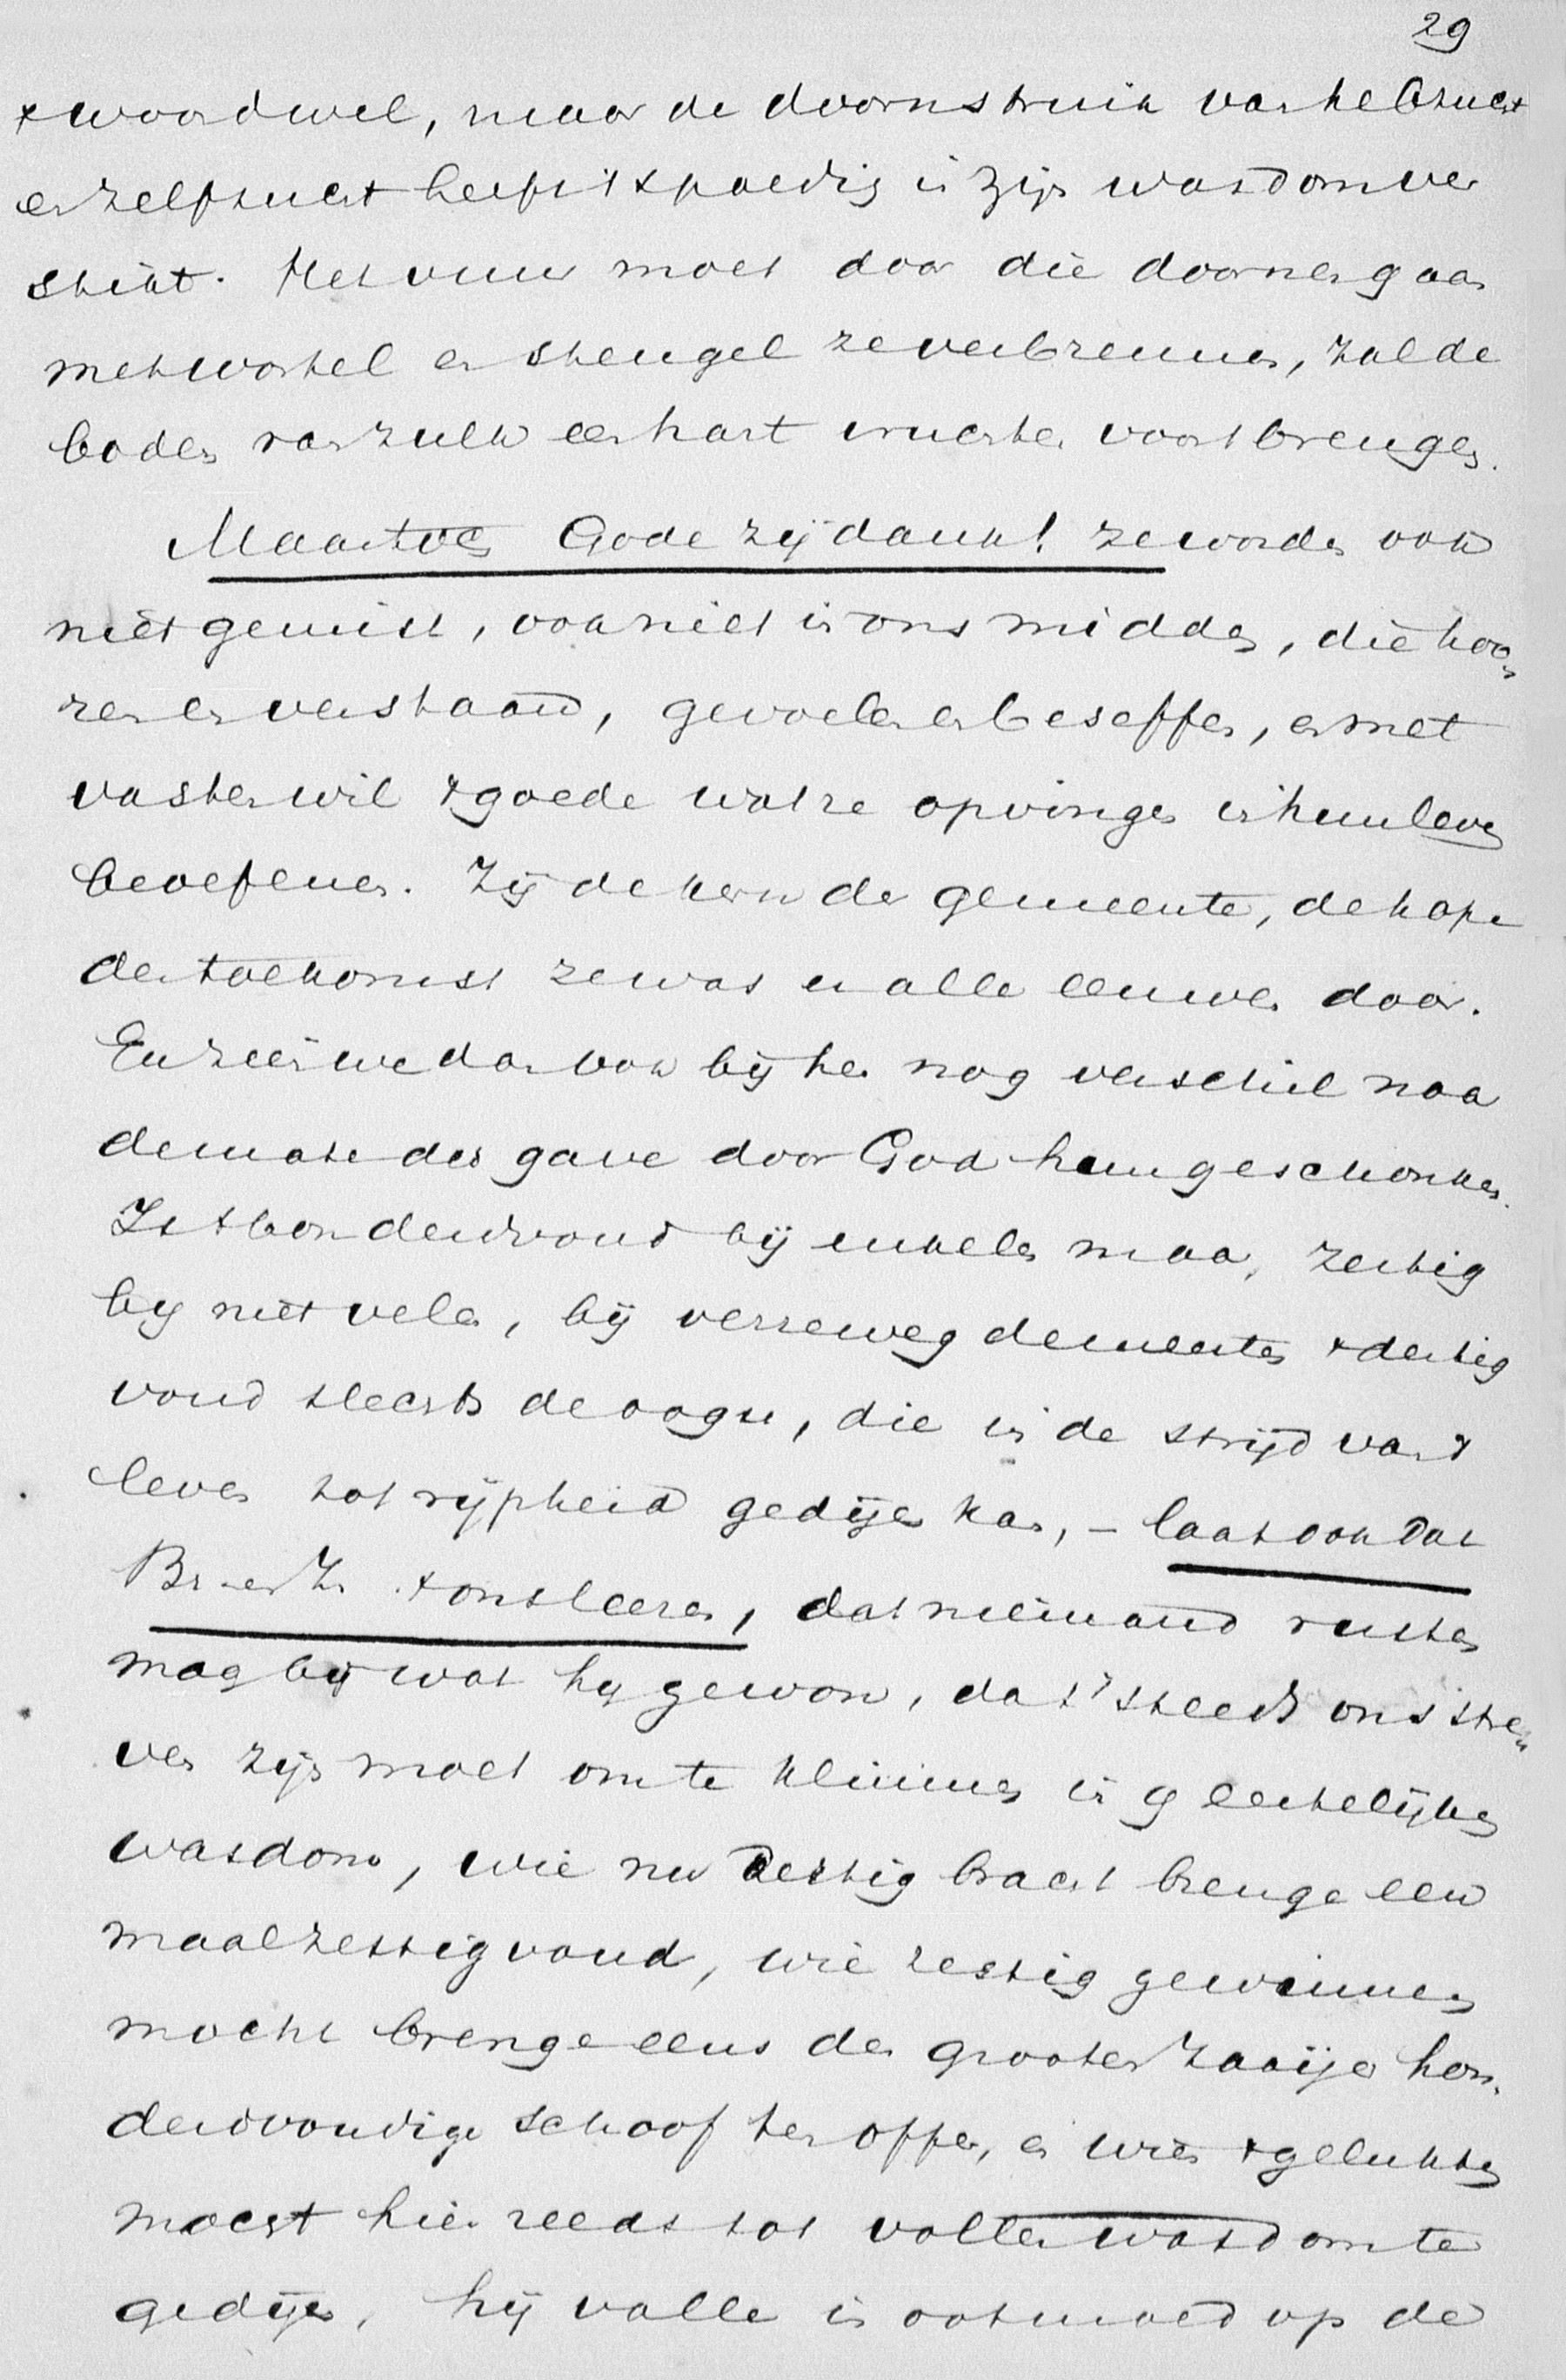 29
't woord wel, maar de doornstruik van hebzucht
en zelfzucht heeft 't spoedig in zijn wasdom ver
stikt. Het vuur moet door die doornen gaan
met wortel en stengel ze verbrennen, zal de
bodem van zulk een hart vruchten voortbrengen.
Maar toch Gode zij dank! ze worden ook
niet gemist, ook niet in ons midden, die hoo=
ren en verstaan, gevoelen en beseffen, en met
vasten wil 't goede wat ze opvingen in hun leven
beoefenen. Zij de kern der gemeente, de hope
der toekomst ze was er alle eeuwen door.
En zien we dan ook bij hen nog verschil naar
de mate der gave door God hun geschonken.
Is 't honderdvoud bij enkelen maar, zestig
bij niet velen, bij verreweg de meesten 't dertig
voud slechts de oogst, die in de strijd van 't
leven tot rijpheid gedijen kan, – laat ook dat
Br. en Zr. 't ons leeren, dat niemand rusten
mag bij wat hij gewon, dat 't steeds ons stre=
ven zijn moet om te klimmen in geestelijken
wasdom, wie nu dertig bracht brenge een
maal zestigvoud, wie zestig gewinnen
mocht brenge eens den grooten Zaaijer hon=
derdvoudige schoof ten offer, en wien 't gelukken
mocht hier reeds tot vollen wasdom te
gedijen, hij valle in ootmoed op de